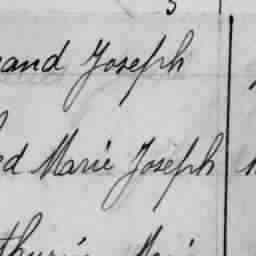 and Joseph
ed Marie Joseph
thurin Marie